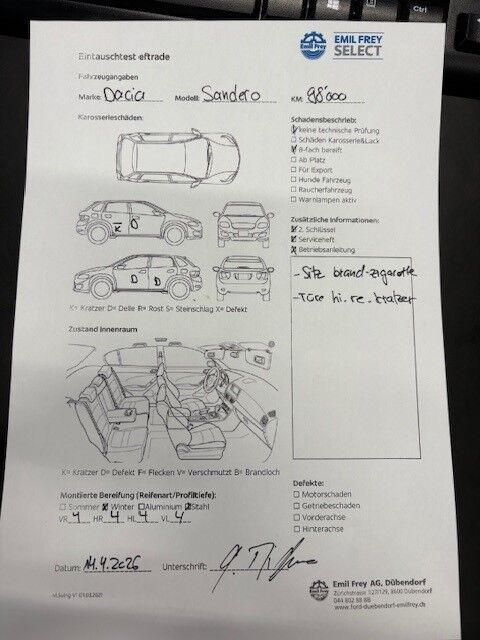 Ctrl
Emil Frey
EMIL FREY
SELECT
Eintauschtest eftrade
Fahrzeugangaben
Marke: Dacia Modell: Sandero KM: 98'000
Karosserieschäden:
K
D
D D
K= Kratzer D= Delle R= Rost S= Steinschlag X= Defekt
Schadensbeschrieb:
keine technische Prüfung
Schäden Karosserie&Lack
8-fach bereift
Ab Platz
Für Export
Hunde Fahrzeug
Raucherfahrzeug
Warnlampen aktiv
Zusätzliche Informationen:
2. Schlüssel
Serviceheft
Betriebsanleitung
- Sitz brand-zigarette
- Türe hi. re. kratzer
Zustand Innenraum
K= Kratzer D= Defekt F= Flecken V= Verschmutzt B= Brandloch
Montierte Bereifung (Reifenart/Profiltiefe):
Sommer Winter Aluminium Stahl
VR 4 HR 4 HL 4 VL 4
Defekte:
Motorschaden
Getriebeschaden
Vorderachse
Hinterachse
Datum: 14.4.2026 Unterschrift:
Emil Frey AG, Dübendorf
Zürichstrasse 127/129, 8600 Dübendorf
044 802 88 88
www.ford-duebendorf-emilfrey.ch